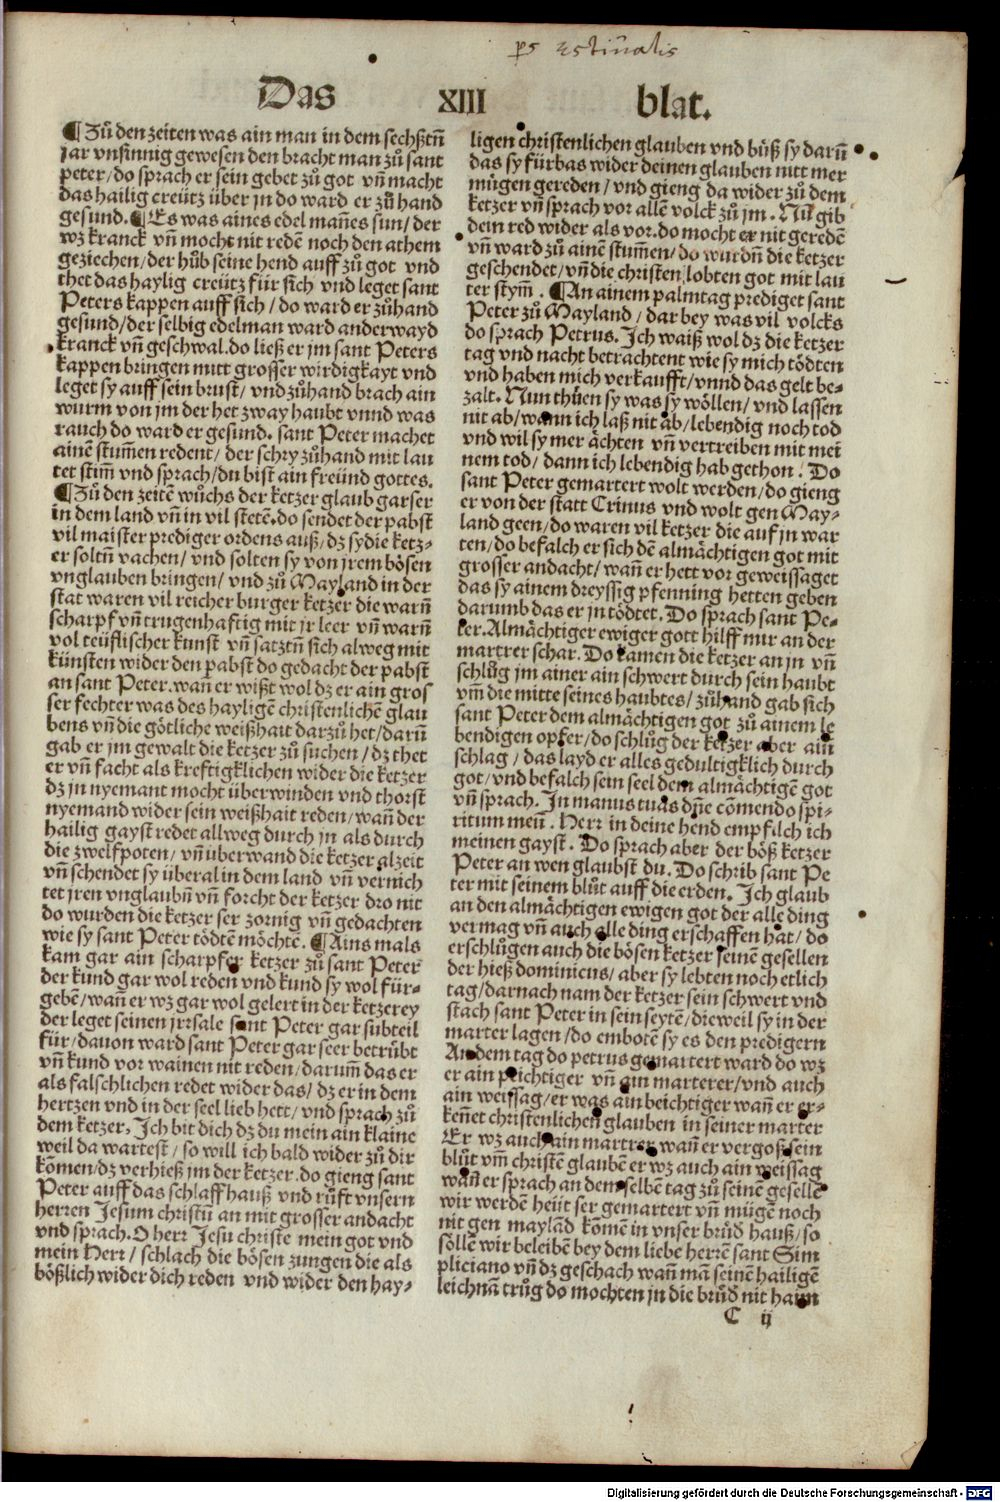 ps estiualis
Das XIII blat.
¶Zů den zeiten was ain man in dem sechßtñ
jar vnsinnig gewesen den bracht man zů sant
peter/do sprach er sein gebet zů got vñ macht
das hailig creütz über jn do ward er zů hand
gesund.¶Es was aines edel mañes sun/der
wz kranck vñ mocht nit redẽ noch den athem
geziechen/der hůb seine hend auff zů got vnd
thet das haylig creütz für sich vnd leget sant
Peters kappen auff sich/do ward er zůhand
gesund/der selbig edelman ward anderwayd
kranck vñ geschwal.do ließ er jm sant Peters
kappen bringen mitt grosser wirdigkayt vnd
leget sy auff sein brust/vnd zůhand brach ain
wurm von jm der het zway haubt vnnd was
rauch do ward er gesund. sant Peter machet
ainẽ stum̃en redent/der schry zůhand mit lau
tet stim̃ vnd sprach/du bist ain freünd gottes.
¶Zů den zeitẽ wůchs der ketzer glaub gar ser
in dem land vñ in vil stetẽ.do sendet der pabst
vil maister prediger ordens auß/dz sy die ketz-
er soltñ vachen/vnd solten sy von jrem bösen
vnglauben bringen/vnd zů Mayland in der
stat waren vil reicher burger ketzer die warñ
scharpf vñ trugenhaftig mit jr leer vñ warñ
vol teüflischer kunst vñ satztñ sich alweg mit
künsten wider den pabst do gedacht der pabst
an sant Peter.wañ er wißt wol dz er ain gros
ser fechter was des hayligẽ christenlichẽ glau
bens vñ die götliche weißhait darzů het/darũ
gab er jm gewalt die ketzer zů suchen/dz thet
er vñ facht als kreftigklichen wider die ketzer
dz jn nyemant mocht überwinden vnd thorst
nyemand wider sein weißhait reden/wañ der
hailig gayst redet allweg durch jn als durch
die zwelfpoten/vñ überwand die ketzer alzeit
vñ schendet sy überal in dem land vñ vernich
tet jren vnglaubñ vñ forcht der ketzer dro nit
do wurden die ketzer ser zornig vñ gedachten
wie sy sant Peter tödtẽ möchtẽ.¶Ains mals
kam gar ain scharpfer ketzer zů sant Peter
der kund gar wol reden vnd kund sy wol für-
gebẽ/wañ er wz gar wol gelert in der ketzerey
der leget seinen jrrsale sant Peter gar subteil
für/dauon ward sant Peter gar seer betrůbt
vñ kund vor wainen nit reden/darum̃ das er
als falschlichen redet wider das/dz er in dem
hertzen vnd in der seel lieb hett/vnd sprach zů
dem ketzer, Ich bit dich dz du mein ain klaine
weil da wartest/so will ich bald wider zů dir
kõmen/dz verhieß jm der ketzer.do gieng sant
Peter auff das schlaff hauß vnd růft vnsern
herren Jesum christũ an mit grosser andacht
vnd sprach.O herr Jesu christe mein got vnd
mein Herr/schlach die bösen zungen die als
bößlich wider dich reden vnd wider den hay-
ligen christenlichen glauben vnd büß sy darũ
das sy fürbas wider deinen glauben nitt mer
mügen gereden/vnd gieng da wider zů dem
ketzer vñ sprach vor allẽ volck zů jm. Nů gib
dein red wider als vor.do mocht er nit geredẽ
vñ ward zů ainẽ stum̃en/do wurdñ die ketzer
geschendet/vñ die christen lobten got mit lau
ter stym̃.¶An ainem palmtag prediget sant
Peter zů Mayland/dar bey was vil volcks
do sprach Petrus. Ich waiß wol dz die ketzer
tag vnd nacht betrachtent wie sy mich tödten
vnd haben mich verkaufft/vnnd das gelt be-
zalt. Nun thüen sy was sy wöllen/vnd lassen
nit ab/wann ich laß nit ab/lebendig noch tod
vnd wil sy mer ächten vñ vertreiben mit mei
nem tod/dann ich lebendig hab gethon. Do
sant Peter gemartert wolt werden/do gieng
er von der statt Crinus vnd wolt gen May-
land geen/do waren vil ketzer die auf jn war
ten/do befalch er sich dẽ almächtigen got mit
grosser andacht/wañ er hett vor geweissaget
das sy ainem dreyssig pfenning hetten geben
darumb das er jn tödtet. Do sprach sant Pe-
ter.Almächtiger ewiger gott hilff mir an der
martrer schar. Do kamen die ketzer an jn vñ
schlůg jm ainer ain schwert durch sein haubt
vm̃ die mitte seines haubtes/zůhand gab sich
sant Peter dem almächtigen got zů ainem le
bendigen opfer/do schlůg der ketzer aber ain
schlag/das layd er alles gedultigklich durch
got/vnd befalch sein seel dem almächtigẽ got
vñ sprach. In manus tuas dñe cõmendo spi-
ritum meũ. Herr in deine hend empfilch ich
meinen gayst. Do sprach aber der böß ketzer
Peter an wen glaubst du. Do schrib sant Pe
ter mit seinem blůt auff die erden. Ich glaub
an den almächtigen ewigen got der alle ding
vermag vñ auch alle ding erschaffen hat/do
erschlůgen auch die bösen ketzer seinẽ gesellen
der hieß dominicus/aber sy lebten noch etlich
tag/darnach nam der ketzer sein schwert vnd
stach sant Peter in sein seytẽ/dieweil sy in der
marter lagen/do embotẽ sy es den predigern
An dem tag do petrus gemartert ward do wz
er ain peichtiger vñ ain marterer/vnd auch
ain weissag/er was ain beichtiger wañ er er-
keñet christenlichen glauben in seiner marter
Er wz auch ain martrer wañ er vergoß sein
blůt vm̃ christẽ glaubẽ er wz auch ain weissag
wañ er sprach an dem selben tag zů seinẽ gesellẽ
wir werdẽ heüt ser gemartert vñ mügẽ noch
nit gen maylãd kõmẽ in vnser brůd̃ hauß/so
söllẽ wir beleibẽ bey dem liebẽ herrẽ sant Sim
pliciano vñ dz geschach wañ mã seinẽ hailigẽ
leichnã trůg do mochten jn die brůd̃ nit haim
C ij
Digitalisierung gefördert durch die Deutsche Forschungsgemeinschaft - DFG